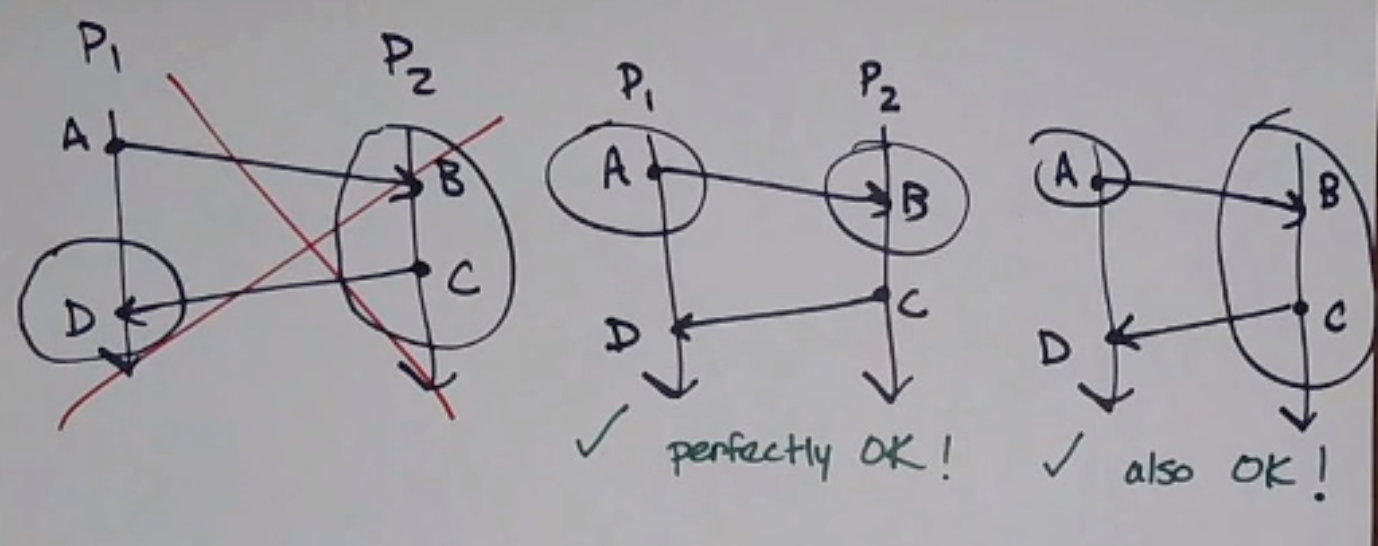 P1 P2
A B
D C
P1 P2
A B
D C
✓ perfectly OK!
A B
D C
✓ also OK!